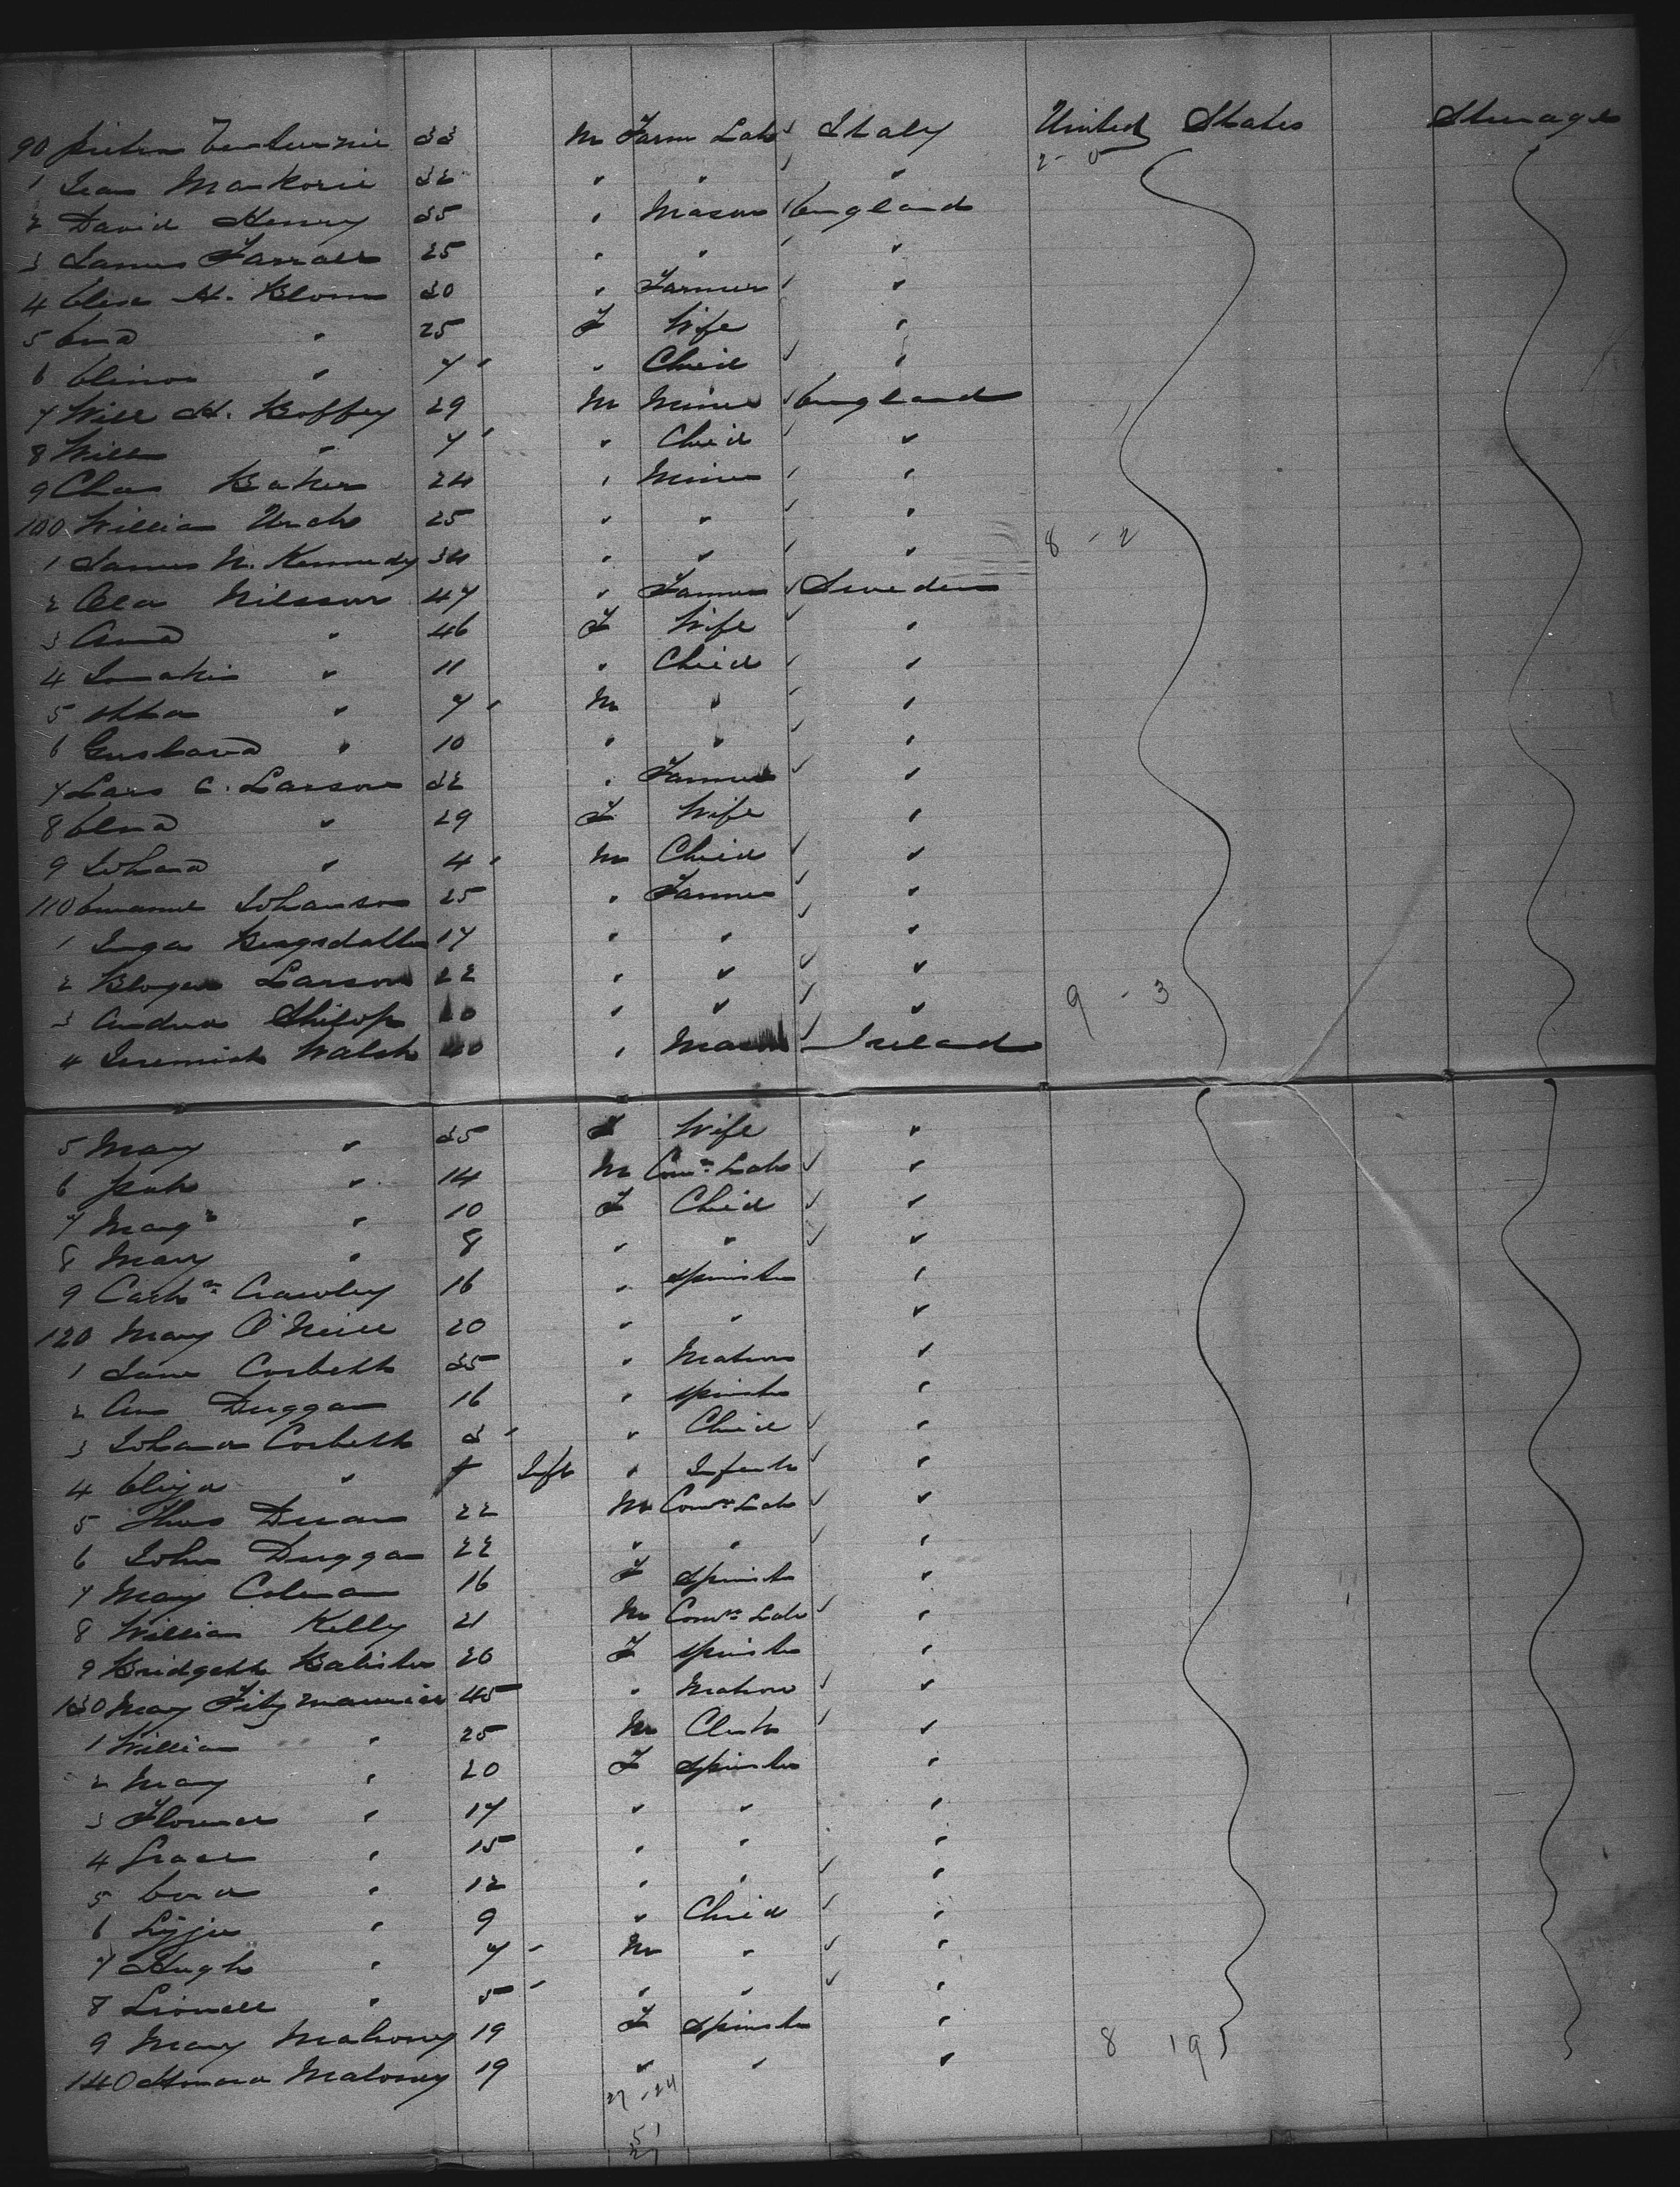 90 33 M Farm Lab Italy United States Steerage
1 32 " " " 2 - 0
2 David Henry 35 " Mason England
3 James Farrell 25 " " "
4 H. Blom 30 " Farmer "
5 " 25 F Wife "
6 " 7 " Child "
7 Will H. Boffey 29 M Miner England
8 Will " 7 " Child "
9 Chas Baker 24 " Miner "
100 William 25 " " "
1 James N. Kennedy 34 " " " 8 - 2
2 Ola Nilsson 47 " Farmer Sweden
3 Anna " 46 F Wife "
4 " 11 " Child "
5 " 7 M " "
6 Gustava " 10 " " "
7 Lars C. Larson 32 " Farmer "
8 Elna " 29 F Wife "
9 Johana " 4 M Child "
110 Johanson 25 " Farmer "
1 Inga 17 " " "
2 Larson 22 " " "
3 Andrea " " " 9 - 3
4 Jeremiah Walsh 40 " Mason Ireland
5 Mary " 35 F Wife "
6 Patk " 14 M Comn Lab "
7 Margt " 10 F Child "
8 Mary " 8 " " "
9 Cathn Crawley 16 " Spinster "
120 Mary O'Neill 20 " " "
1 Jane Corbett 35 " Matron "
2 Ann Duggan 16 " Spinster "
3 Johana Corbett 3 " Child "
4 Eliza " Inft " Infant "
5 Thos 22 M Comn Lab "
6 John Duggan 22 " " "
7 Mary Colman 16 F Spinster "
8 William Kelly 21 M Comn Lab "
9 Bridgett 20 F Spinster "
130 Mary Fitzmaurice 45 " Matron "
1 William " 25 M Clerk "
2 Mary " 20 F Spinster "
3 Florence " 17 " " "
4 Grace " 15 " " "
5 " 12 " " "
6 Lizzie " 9 " Child "
7 Hugh " 7 M " "
8 Lionell " 5 " " "
9 Mary Mahony 19 F Spinster " 8 19 5
140 Honora Malony 19 " " "
27 - 24
51
27